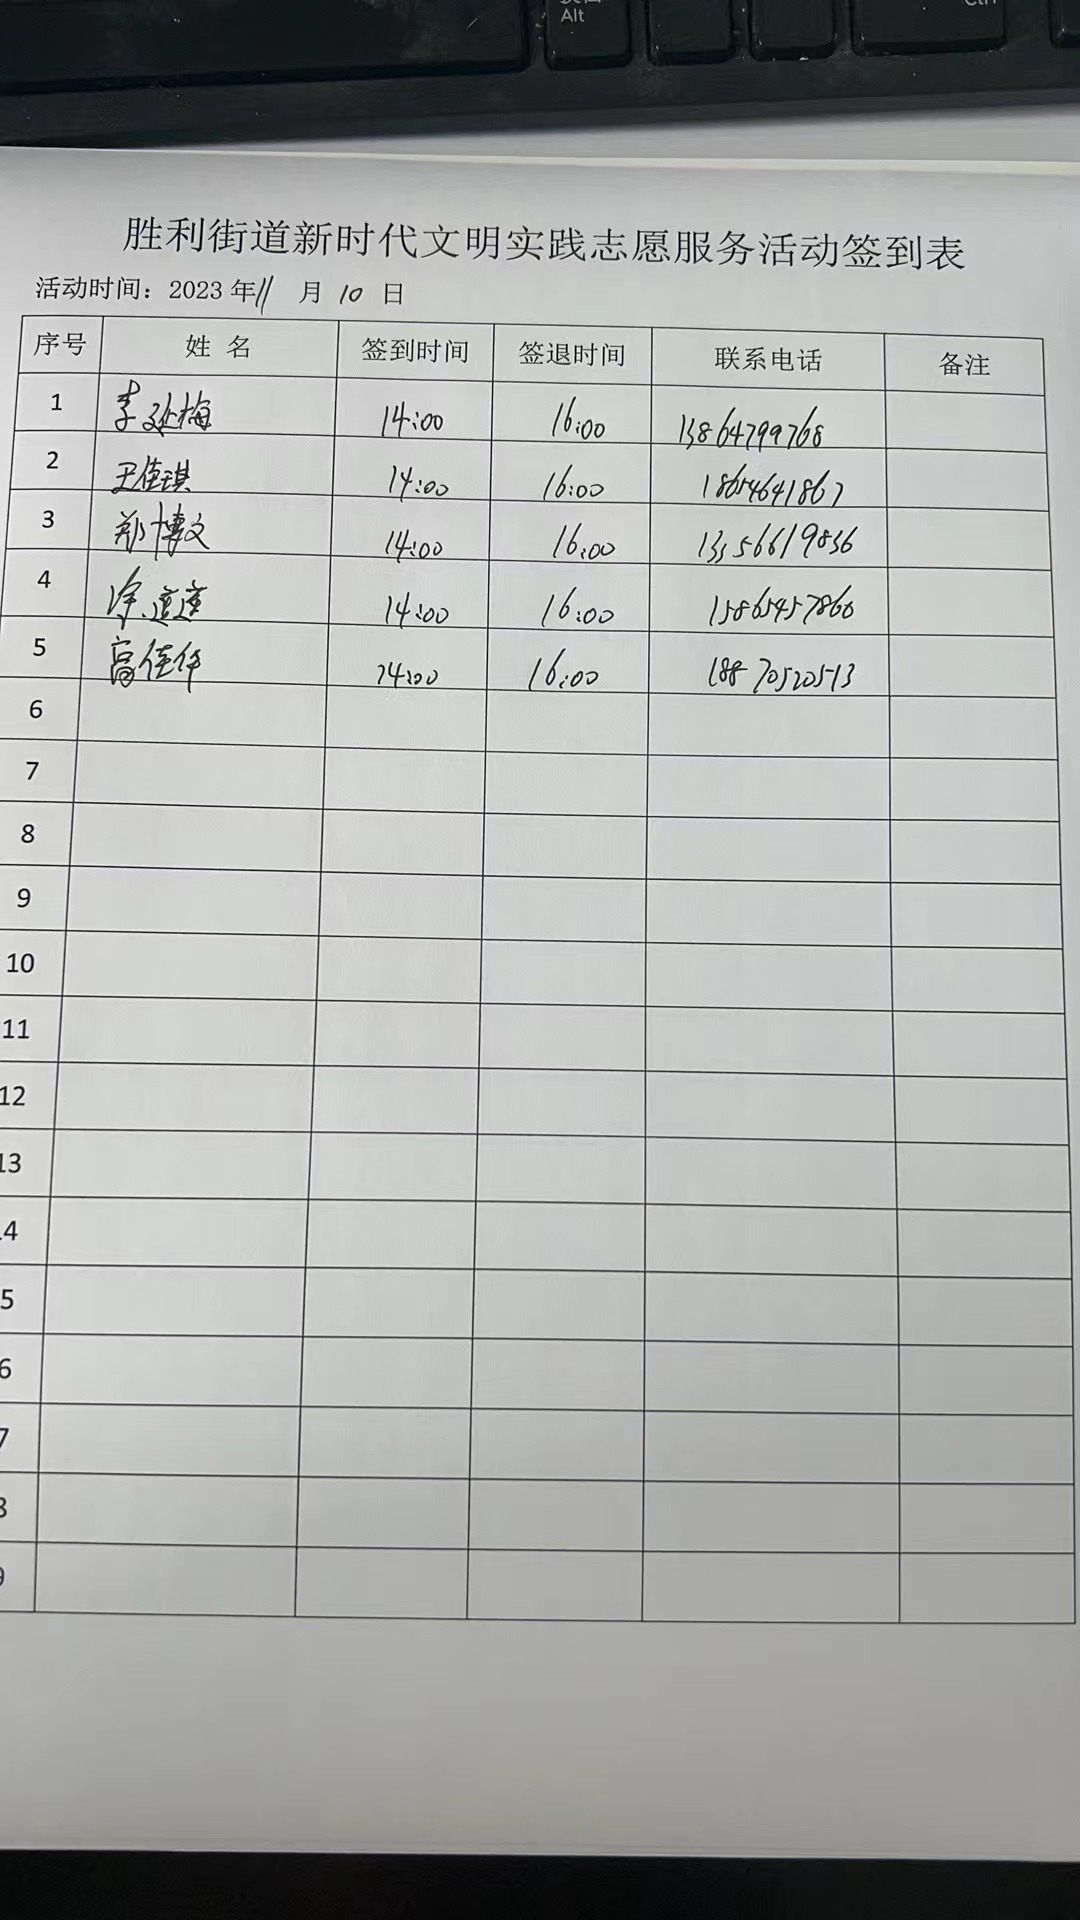 Alt
Ctrl
胜利街道新时代文明实践志愿服务活动签到表
活动时间：2023年11月10日
序号 姓名 签到时间 签退时间 联系电话 备注
1 李延梅 14:00 16:00 13864799768
2 王佳琪 14:00 16:00 18654641867
3 郑博文 14:00 16:00 13356619836
4 徐道道 14:00 16:00 15865457860
5 高佳华 14:00 16:00 18870520513
6
7
8
9
10
11
12
13
4
5
6
7
8
9